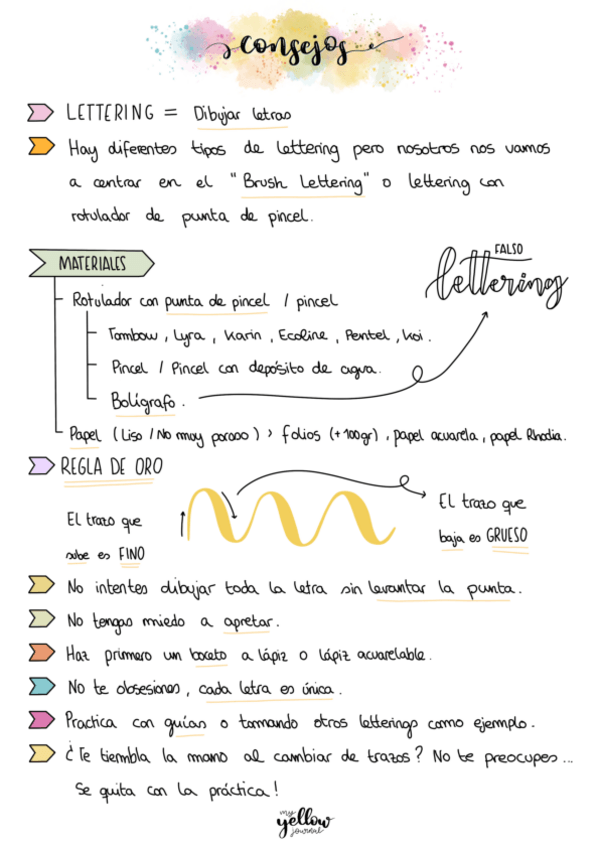 consejos
LETTERING = Dibujar letras
Hay diferentes tipos de lettering pero nosotros nos vamos
a centrar en el "Brush Lettering" o lettering con
rotulador de punta de pincel.
MATERIALES
FALSO
lettering
Rotulador con punta de pincel / pincel
Tombow, Lyra, Karin, Ecoline, Pentel, Koi.
Pincel / Pincel con depósito de agua.
Bolígrafo.
Papel (Liso / No muy poroso) > folios (+100gr), papel acuarela, papel Rhodia.
REGLA DE ORO
El trazo que
sube es FINO
El trazo que
baja es GRUESO
No intentes dibujar toda la letra sin levantar la punta.
No tengas miedo a apretar.
Haz primero un boceto a lápiz o lápiz acuarelable.
No te obsesiones, cada letra es única.
Practica con guías o tomando otros letterings como ejemplo.
¿Te tiembla la mano al cambiar de trazos? No te preocupes...
Se quita con la práctica!
my
yellow
journal